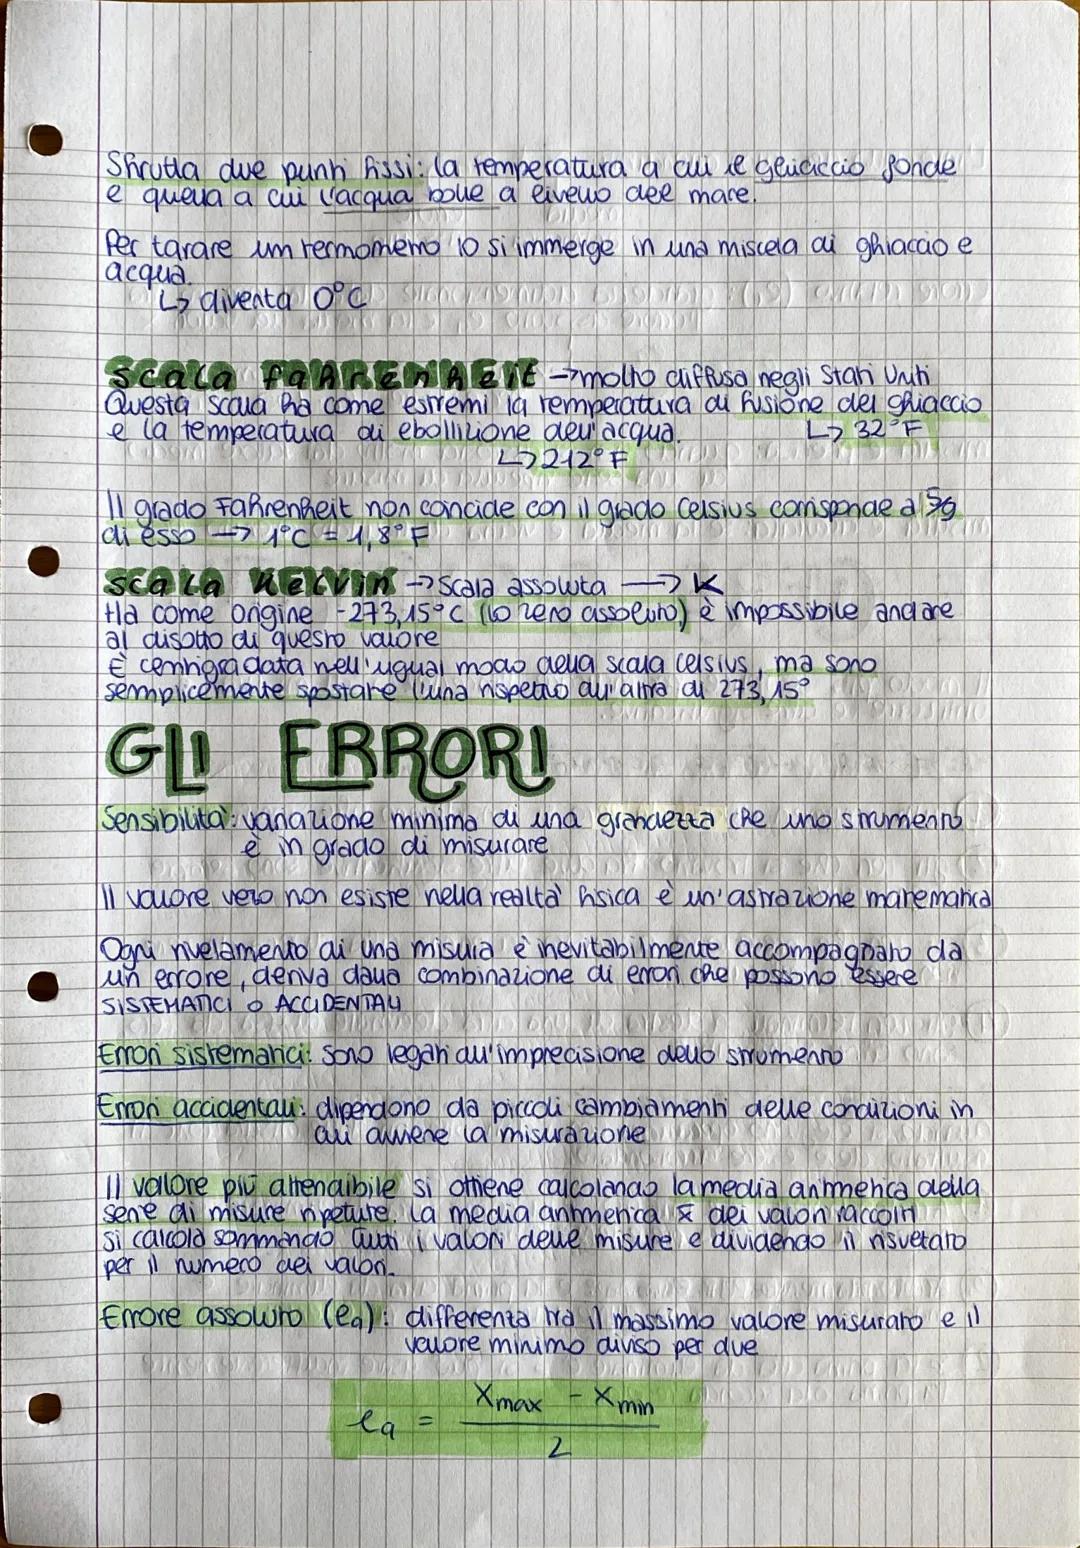 Sfrutta due punti fissi: la temperatura a cui il ghiaccio fonde
e quella a cui l'acqua bolle a livello del mare.
Per tarare un termometro lo si immerge in una miscela di ghiaccio e
acqua.
↳ diventa 0°C
SCALA FAHRENHEIT → molto diffusa negli Stati Uniti
Questa scala ha come estremi la temperatura di fusione del ghiaccio
e la temperatura di ebollizione dell'acqua. ↳ 32°F
↳ 212°F
Il grado Fahrenheit non coincide con il grado Celsius corrisponde a 5/9
di esso → 1°C = 1,8°F
SCALA KELVIN → Scala assoluta → K
Ha come origine -273,15°C (lo zero assoluto) è impossibile andare
al disotto di questo valore
È centigradata nell'ugual modo della scala Celsius, ma sono
semplicemente spostate l'una rispetto all'altra di 273,15°
GLI ERRORI
Sensibilità: variazione minima di una grandezza che uno strumento
è in grado di misurare
Il valore vero non esiste nella realtà fisica è un'astrazione matematica
Ogni rivelamento di una misura è inevitabilmente accompagnato da
un errore, deriva dalla combinazione di errori che possono essere
SISTEMATICI O ACCIDENTALI
Errori sistematici: sono legati all'imprecisione dello strumento
Errori accidentali: dipendono da piccoli cambiamenti delle condizioni in
cui avviene la misurazione
Il valore più attendibile si ottiene calcolando la media aritmetica della
serie di misure ripetute. La media aritmetica x̄ dei valori raccolti
si calcola sommando tutti i valori delle misure e dividendo il risultato
per il numero dei valori.
Errore assoluto (ea): differenza tra il massimo valore misurato e il
valore minimo diviso per due
ea = Xmax - Xmin
2